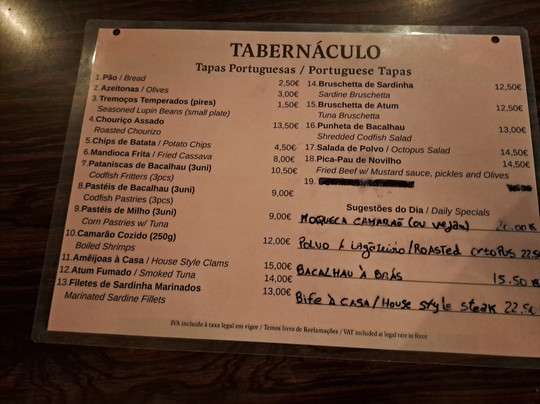 TABERNÁCULO
Tapas Portuguesas / Portuguese Tapas
1. Pão / Bread 2,50€
2. Azeitonas / Olives 3,00€
3. Tremoços Temperados (pires) 1,50€
Seasoned Lupin Beans (small plate)
4. Chouriço Assado 13,50€
Roasted Chourizo
5. Chips de Batata / Potato Chips 4,50€
6. Mandioca Frita / Fried Cassava 8,00€
7. Pataniscas de Bacalhau (3uni) 10,50€
Codfish Fritters (3pcs)
8. Pastéis de Bacalhau (3uni) 9,00€
Codfish Pastries (3pcs)
9. Pastéis de Milho (3uni) 9,00€
Corn Pastries w/ Tuna
10. Camarão Cozido (250g) 12,00€
Boiled Shrimps
11. Amêijoas à Casa / House Style Clams 15,00€
12. Atum Fumado / Smoked Tuna 14,00€
13. Filetes de Sardinha Marinados 13,00€
Marinated Sardine Fillets
14. Bruschetta de Sardinha 12,50€
Sardine Bruschetta
15. Bruschetta de Atum 12,50€
Tuna Bruschetta
16. Punheta de Bacalhau 13,00€
Shredded Codfish Salad
17. Salada de Polvo / Octopus Salad 14,50€
18. Pica-Pau de Novilho 14,50€
Fried Beef w/ Mustard sauce, pickles and Olives
19.
Sugestões do Dia / Daily Specials
MOQUECA CAMARÃO (ou vejan)
POLVO À Lagareiro/ROASTED octopus 22.50
BACALHAU À BRÁS 15.50
Bife À CASA/House style steak 22.5
IVA incluido à taxa legal em vigor / Temos livro de Reclamações / VAT included at legal rate in force